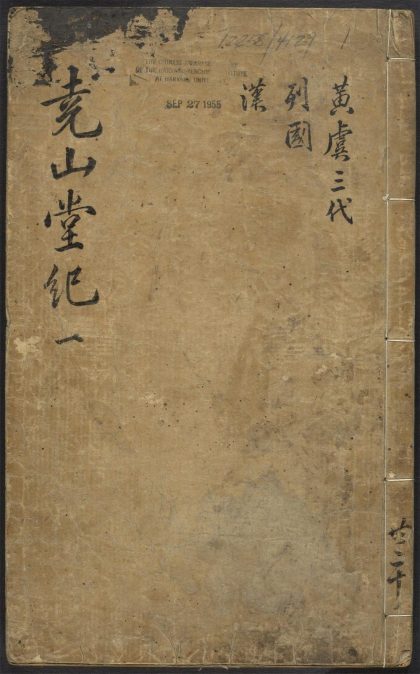 黃虞三代
列國
漢
堯山堂紀一
共二十
THE CHINESE-JAPANESE
OF THE HARVARD-YENCHING
AT HARVARD
SEP 27 1955